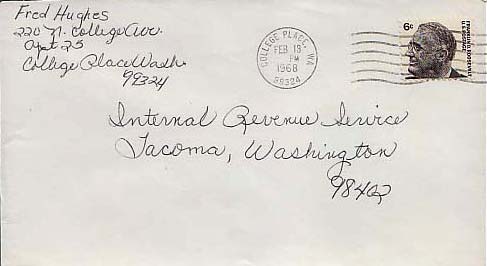 Fred Hughes
220 N. College Ave.
Apt 25
College Place Wash.
99324
COLLEGE PLACE, WA
FEB 13
PM
1968
99324
6c
FRANKLIN D. ROOSEVELT
U.S. POSTAGE
Internal Revenue Service
Tacoma, Washington
98402